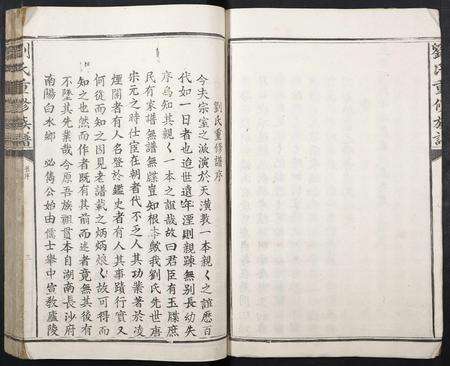 劉氏重修族譜
劉氏重修譜序
今夫宗室之派演於天潢敦一本親〻之誼歷百
代如一日者也迨世遠年湮則親踈無別長幼失
序烏知其親〻一本之誼哉故曰君臣有玉牒庶
民有家譜無譜無牒豈知根本歟我劉氏先世唐
宋元之時仕宦在朝者代不乏人其功業著於凌
煙閣者有人名登於鑑史者有人其事蹟行實又
何從而知之因見老譜載之炳炳烺〻故可得而
知之也然而作者既有其前而述者竟無其後有
不墜其先業哉今原吾族祖貫本自湖南長沙府
南陽白水鄉 必雋公始由儒士舉中宙教廬陵
劉氏重修族譜